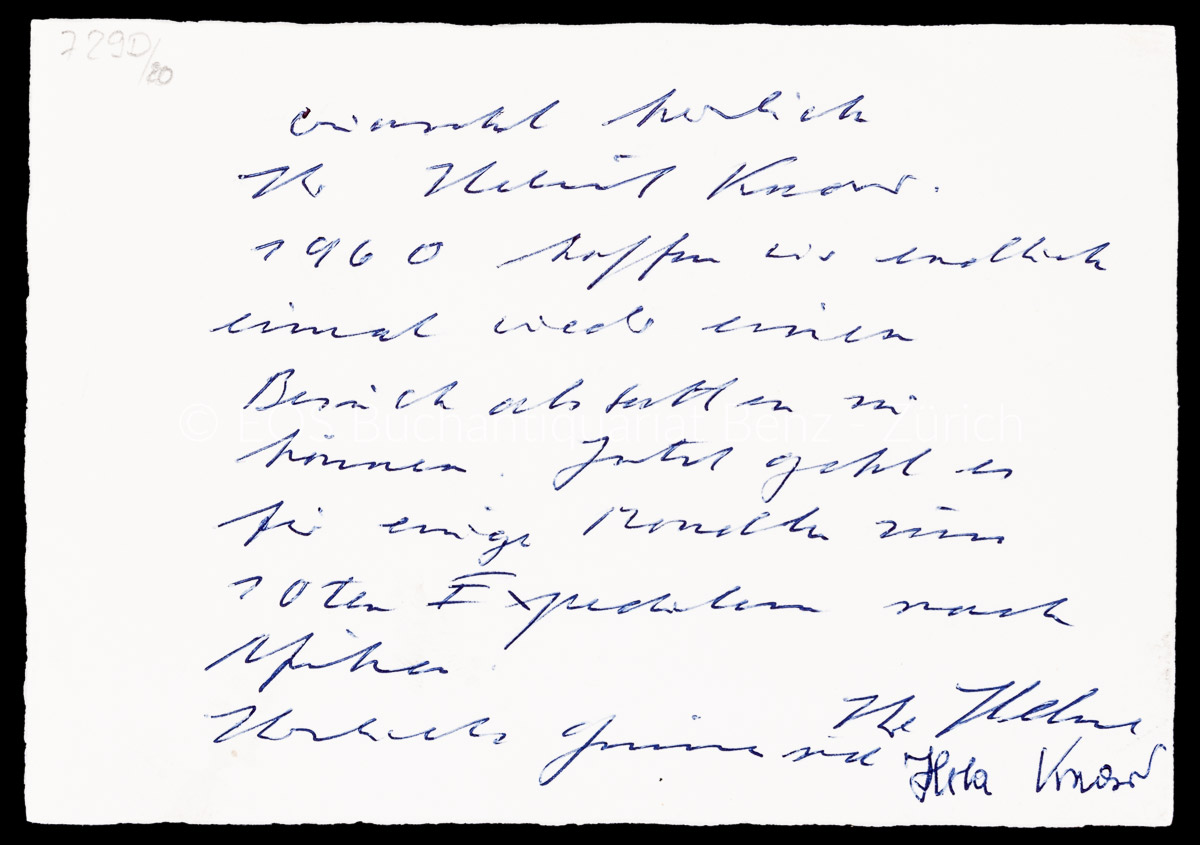 7290/20
wünscht herzlich
Ihr Helmut Knaur.
1960 hoffen wir endlich
einmal wieder einen
Besuch abstatten zu
© EOS Buchantiquariat Benz - Zürich
können. Jetzt geht es
für einige Monate zur
10ten Expedition nach
Afrika.
Herzliche Grüsse sind Ihre Helmut
Hela Knaur